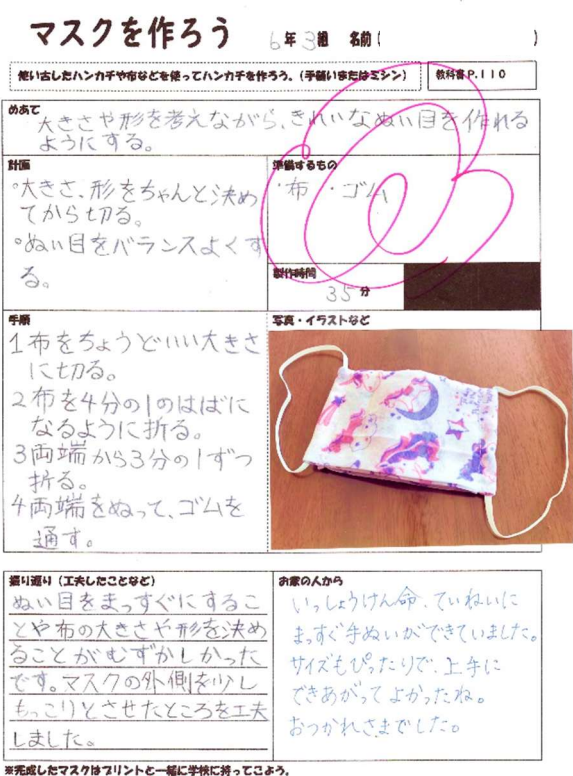 マスクを作ろう 6年3組 名前( )
使い古したハンカチや布などを使ってハンカチを作ろう。(手縫いまたはミシン)
教科書P.110
めあて
大きさや形を考えながら、きれいなぬい目を作れる
ようにする。
計画
・大きさ、形をちゃんと決め
てから切る。
・ぬい目をバランスよくす
る。
準備するもの
・布 ・ゴム
製作時間
35分
手順
1 布をちょうどいい大きさ
に切る。
2 布を4分の1のはばに
なるように折る。
3 両端から3分の1ずつ
折る。
4 両端をぬって、ゴムを
通す。
写真・イラストなど
振り返り(工夫したことなど)
ぬい目をまっすぐにするこ
とや布の大きさや形を決め
ることがむずかしかった
です。マスクの外側を少し
もっこりとさせたところを工夫
しました。
お家の人から
いっしょうけん命、ていねいに
まっすぐ手ぬいができていました。
サイズもぴったりで、上手に
できあがってよかったね。
おつかれさまでした。
※完成したマスクはプリントと一緒に学校に持ってこよう。